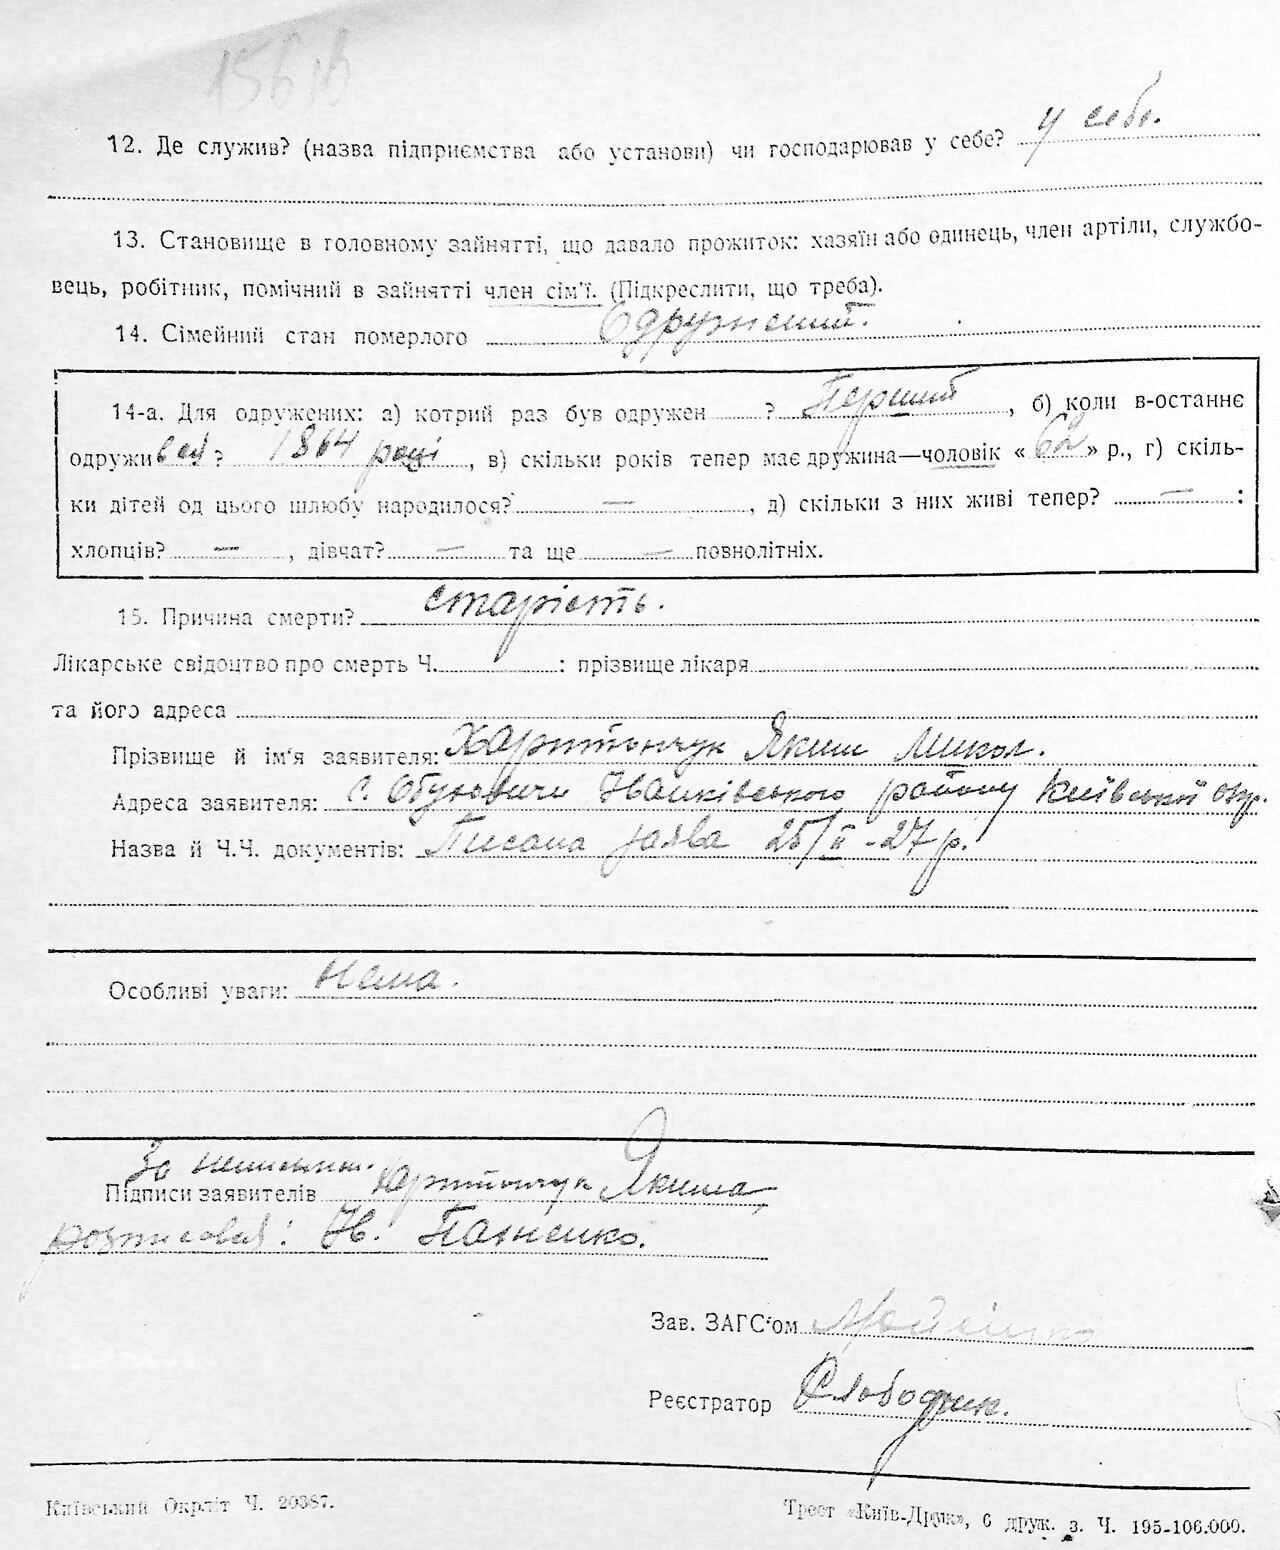 156
12. Де служив? (назва підприємства або установи) чи господарював у себе? у себе.
13. Становище в головному зайнятті, що давало прожиток: хазяїн або одинець, член артіли, службо-
вець, робітник, помічний в зайнятті член сім'ї. (Підкреслити, що треба).
14. Сімейний стан померлого Одружений.
14-а. Для одружених: а) котрий раз був одружен ? Перший, б) коли в-останнє
одруживсь? 1864 році, в) скільки років тепер має дружина—чоловік «62» р., г) скіль-
ки дітей од цього шлюбу народилося? —, д) скільки з них живі тепер? — :
хлопців? —, дівчат? — та ще — повнолітніх.
15. Причина смерти? старість.
Лікарське свідоцтво про смерть Ч. : прізвище лікаря
та його адреса
Прізвище й ім'я заявителя: Харитончук Яким Микол.
Адреса заявителя: с. Обуховичи Іванківського району Київської окр.
Назва й Ч.Ч. документів: Писана заява 25/II-27 р.
Особливі уваги: Нема.
За неписьмен.
Підписи заявителів Харитончук Якима
розписався: Н. Пащенко.
Зав. ЗАГС'ом
Реєстратор Слободяник.
Київський Окрліт Ч. 20387.
Трест «Київ-Друк», 6 друк. з. Ч. 195-106.000.